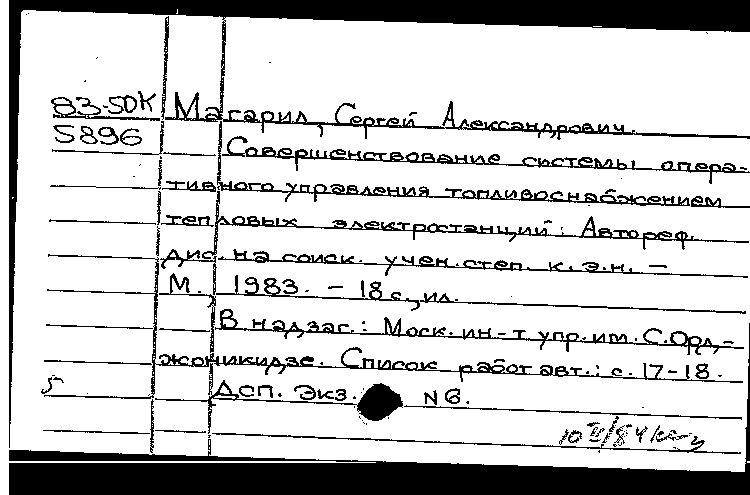 83-50К Магарил, Сергей Александрович.
5896 Совершенствование системы опера-
тивного управления топливоснабжением
тепловых электростанций: Автореф.
дис. на соиск. учен. степ. к.э.н. –
М., 1983. – 18 с., ил.
В надзаг.: Моск. ин-т упр. им. С. Орд-
жоникидзе. Список работ авт.: с. 17-18.
5 Дсп. Экз. N 6.